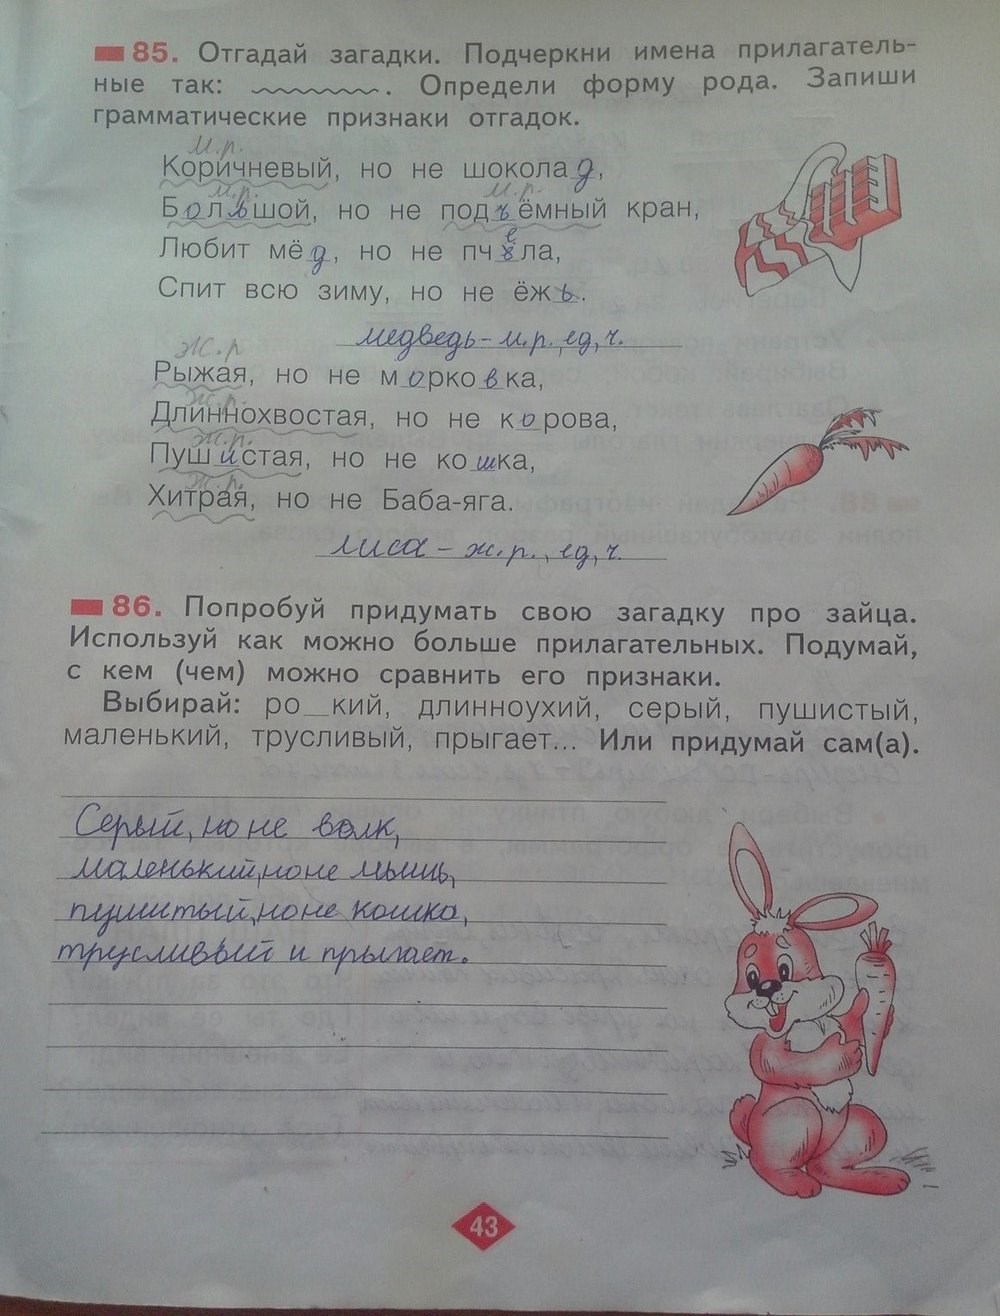 85. Отгадай загадки. Подчеркни имена прилагатель-
ные так: . Определи форму рода. Запиши
грамматические признаки отгадок.
м.р.
Коричневый, но не шоколад,
м.р. м.р.
Большой, но не подъёмный кран,
Любит мёд, но не пчела,
Спит всю зиму, но не ёжь.
медведь - м.р., ед, ч.
ж.р
Рыжая, но не морковка,
ж.р.
Длиннохвостая, но не корова,
ж.р.
Пушистая, но не кошка,
ж.р.
Хитрая, но не Баба-яга.
лиса - ж.р., ед, ч.
86. Попробуй придумать свою загадку про зайца.
Используй как можно больше прилагательных. Подумай,
с кем (чем) можно сравнить его признаки.
Выбирай: ро_кий, длинноухий, серый, пушистый,
маленький, трусливый, прыгает... Или придумай сам(а).
Серый, но не волк,
маленький, но не мышь,
пушитый, но не кошка,
трусливый и прыгает.
43